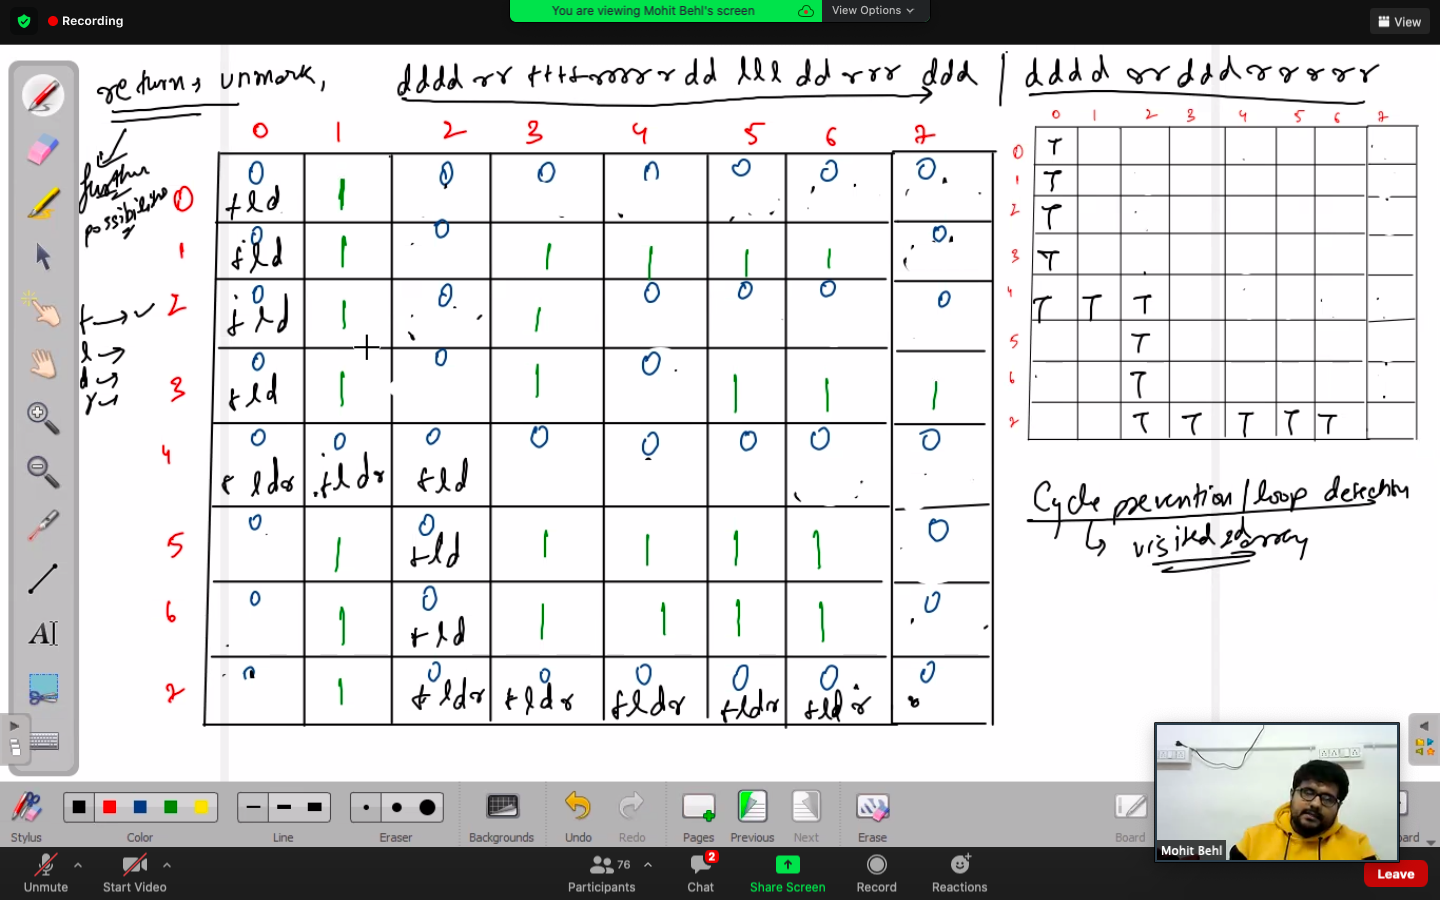 Recording
You are viewing Mohit Behl's screen
View Options
View
return, unmark, dddd rr tttt rrrr r dd lll dd rrr ddd | dddd rr ddd r r r r r
further
possibilities
t → ✓
l →
d →
r →
0 1 2 3 4 5 6 7
0 0 1 0 0 0 0 0 0
tld
1 0 1 0 1 1 1 1 0
tld
2 0 1 0 1 0 0 0 0
tld
3 0 1 0 1 0 1 1 1
tld
4 0 0 0 0 0 0 0 0
tldr tldr tld
5 0 1 0 1 1 1 1 0
tld
6 0 1 0 1 1 1 1 0
tld
7 0 1 0 0 0 0 0 0
tldr tldr tldr tldr tldr
0 1 2 3 4 5 6 7
0 T
1 T
2 T
3 T
4 T T T
5 T
6 T
7 T T T T T
Cycle prevention/loop detection
↳ visited 2d array
AI
Stylus Color Line Eraser Backgrounds Undo Redo Pages Previous Next Erase Board
Mohit Behl
Unmute Start Video 76 Participants 2 Chat Share Screen Record Reactions Leave